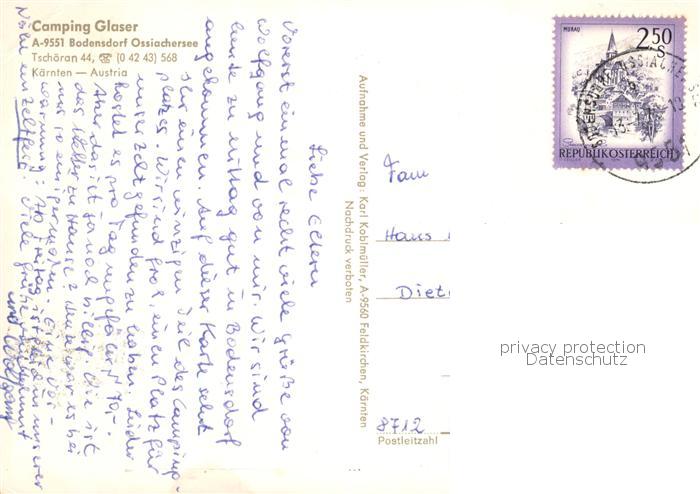 Camping Glaser
A-9551 Bodensdorf Ossiachersee
Tschöran 44, ☎ (0 42 43) 568
Kärnten — Austria
Liebe Eltern
Vorerst einmal recht viele Grüße von
Wolfgang und von mir. Wir sind
heute zu Mittag gut in Bodensdorf
angekommen. Auf dieser Karte seht
Ihr einen winzigen Teil des Camping-
platzes. Wir sind froh, einen Platz für
unser Zelt gefunden zu haben. Leider
kostet es pro Tag ungefähr 70,-
Aber das ist ja noch billig. Wie ist
das Wetter zu Hause? bei
uns so einigermaßen. Eine Vor-
warnung: Ab Freitag ist in unserer
Nähe ein Zeltfest. Viele Grüße
und Wolfgang
Aufnahme und Verlag: Karl Kobimüller, A-9560 Feldkirchen, Kärnten
Nachdruck verboten
MURAU
2.50
S
REPUBLIK ÖSTERREICH
9551
Fam
Hans
Diet
8712
Postleitzahl
privacy protection
Datenschutz